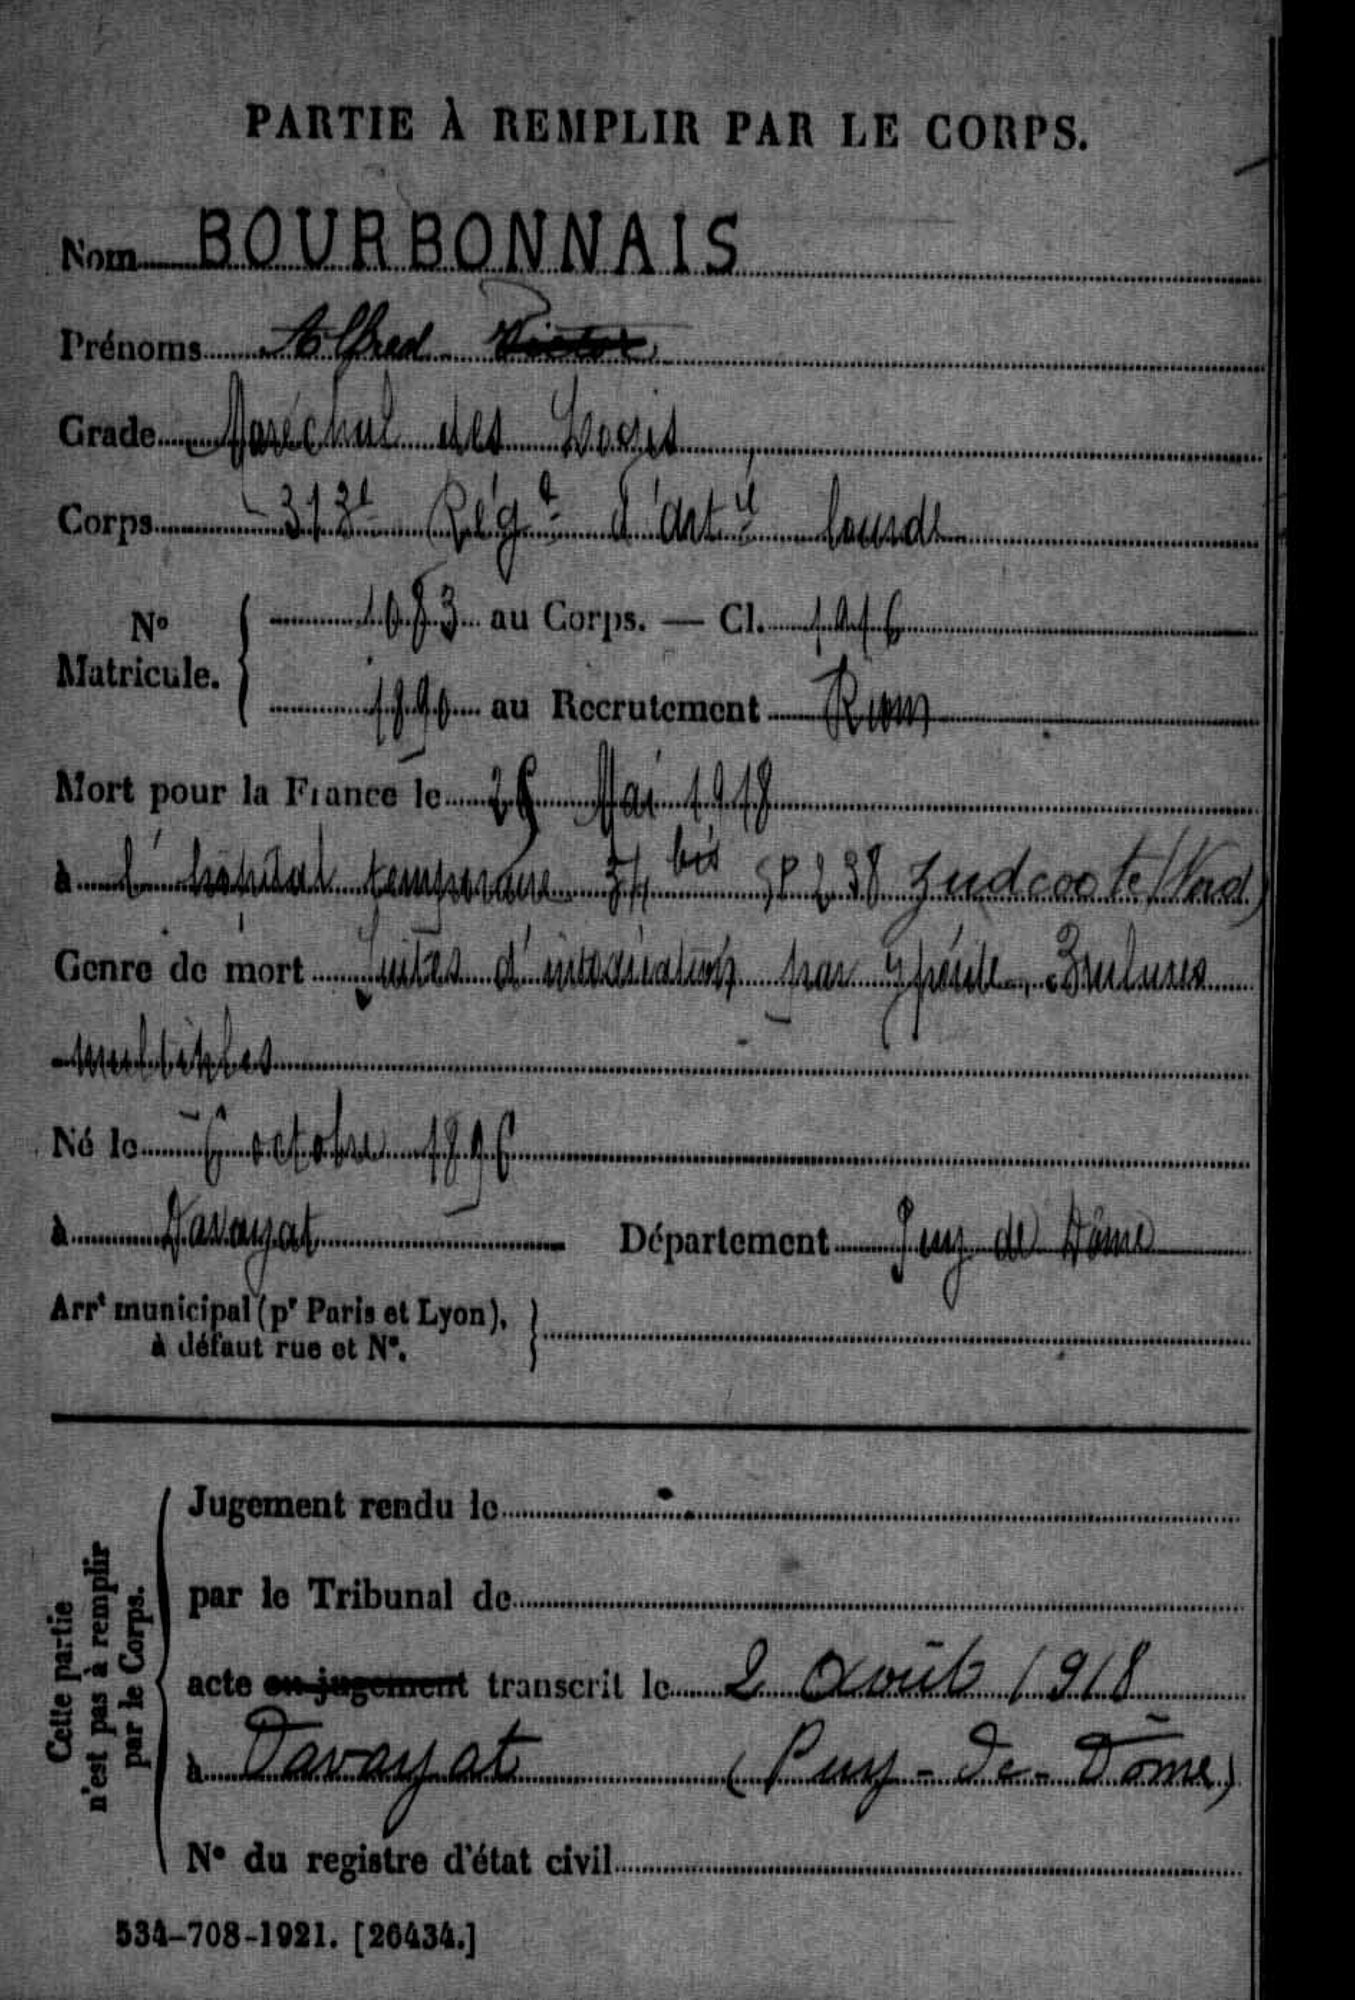 PARTIE À REMPLIR PAR LE CORPS.
Nom BOURBONNAIS
Prénoms Alfred Victor
Grade Maréchal des Logis
Corps 313e Régt d'Artie lourde
No Matricule. 1083 au Corps. — Cl. 1916
1890 au Recrutement Riom
Mort pour la France le 25 Mai 1918
à l'hôpital temporaire 34 bis SP 238 Zudcoote (Nord)
Genre de mort Suites d'intoxication par Ypérite, Brulures
multiples
Né le 6 octobre 1896
à Davayat Département Puy de Dôme
Arrt municipal (pr Paris et Lyon),
à défaut rue et No.
Cette partie
n'est pas à remplir
par le Corps.
Jugement rendu le
par le Tribunal de
acte ou jugement transcrit le 2 Août 1918
à Davayat (Puy-de-Dôme)
No du registre d'état civil
534-708-1921. [26434.]